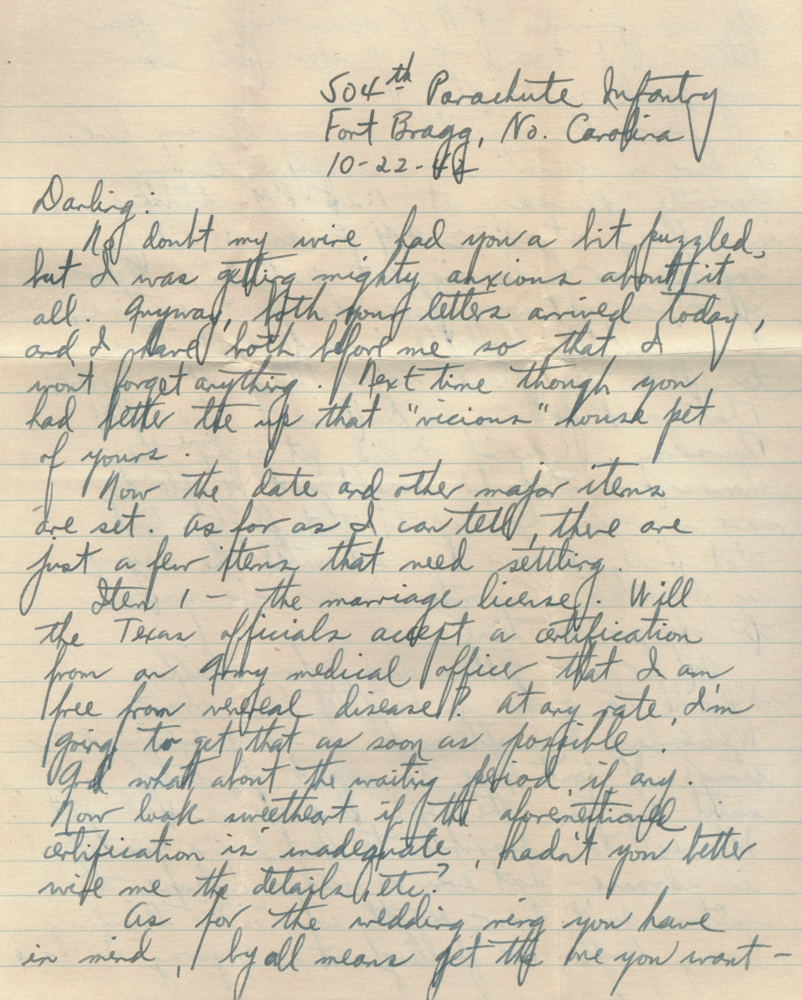 504th Parachute Infantry
Fort Bragg, No. Carolina
10-22-42
Darling:
No doubt my wire had you a bit puzzled,
but I was getting mighty anxious about it
all. Anyway, both your letters arrived today,
and I have both before me so that I
wont forget anything. Next time though you
had better tie up that "vicious" house pet
of yours.
Now the date and other major items
are set. As far as I can tell, there are
just a few items that need settling.
Item 1 - the marriage license. Will
the Texas officials accept a certification
from an Army medical officer that I am
free from venereal disease? At any rate, I'm
going to get that as soon as possible.
And what about the waiting period, if any.
Now look sweetheart if the aforementioned
certification is inadequate, hadn't you better
wire me the details, etc?
As for the wedding ring you have
in mind, by all means get the one you want -